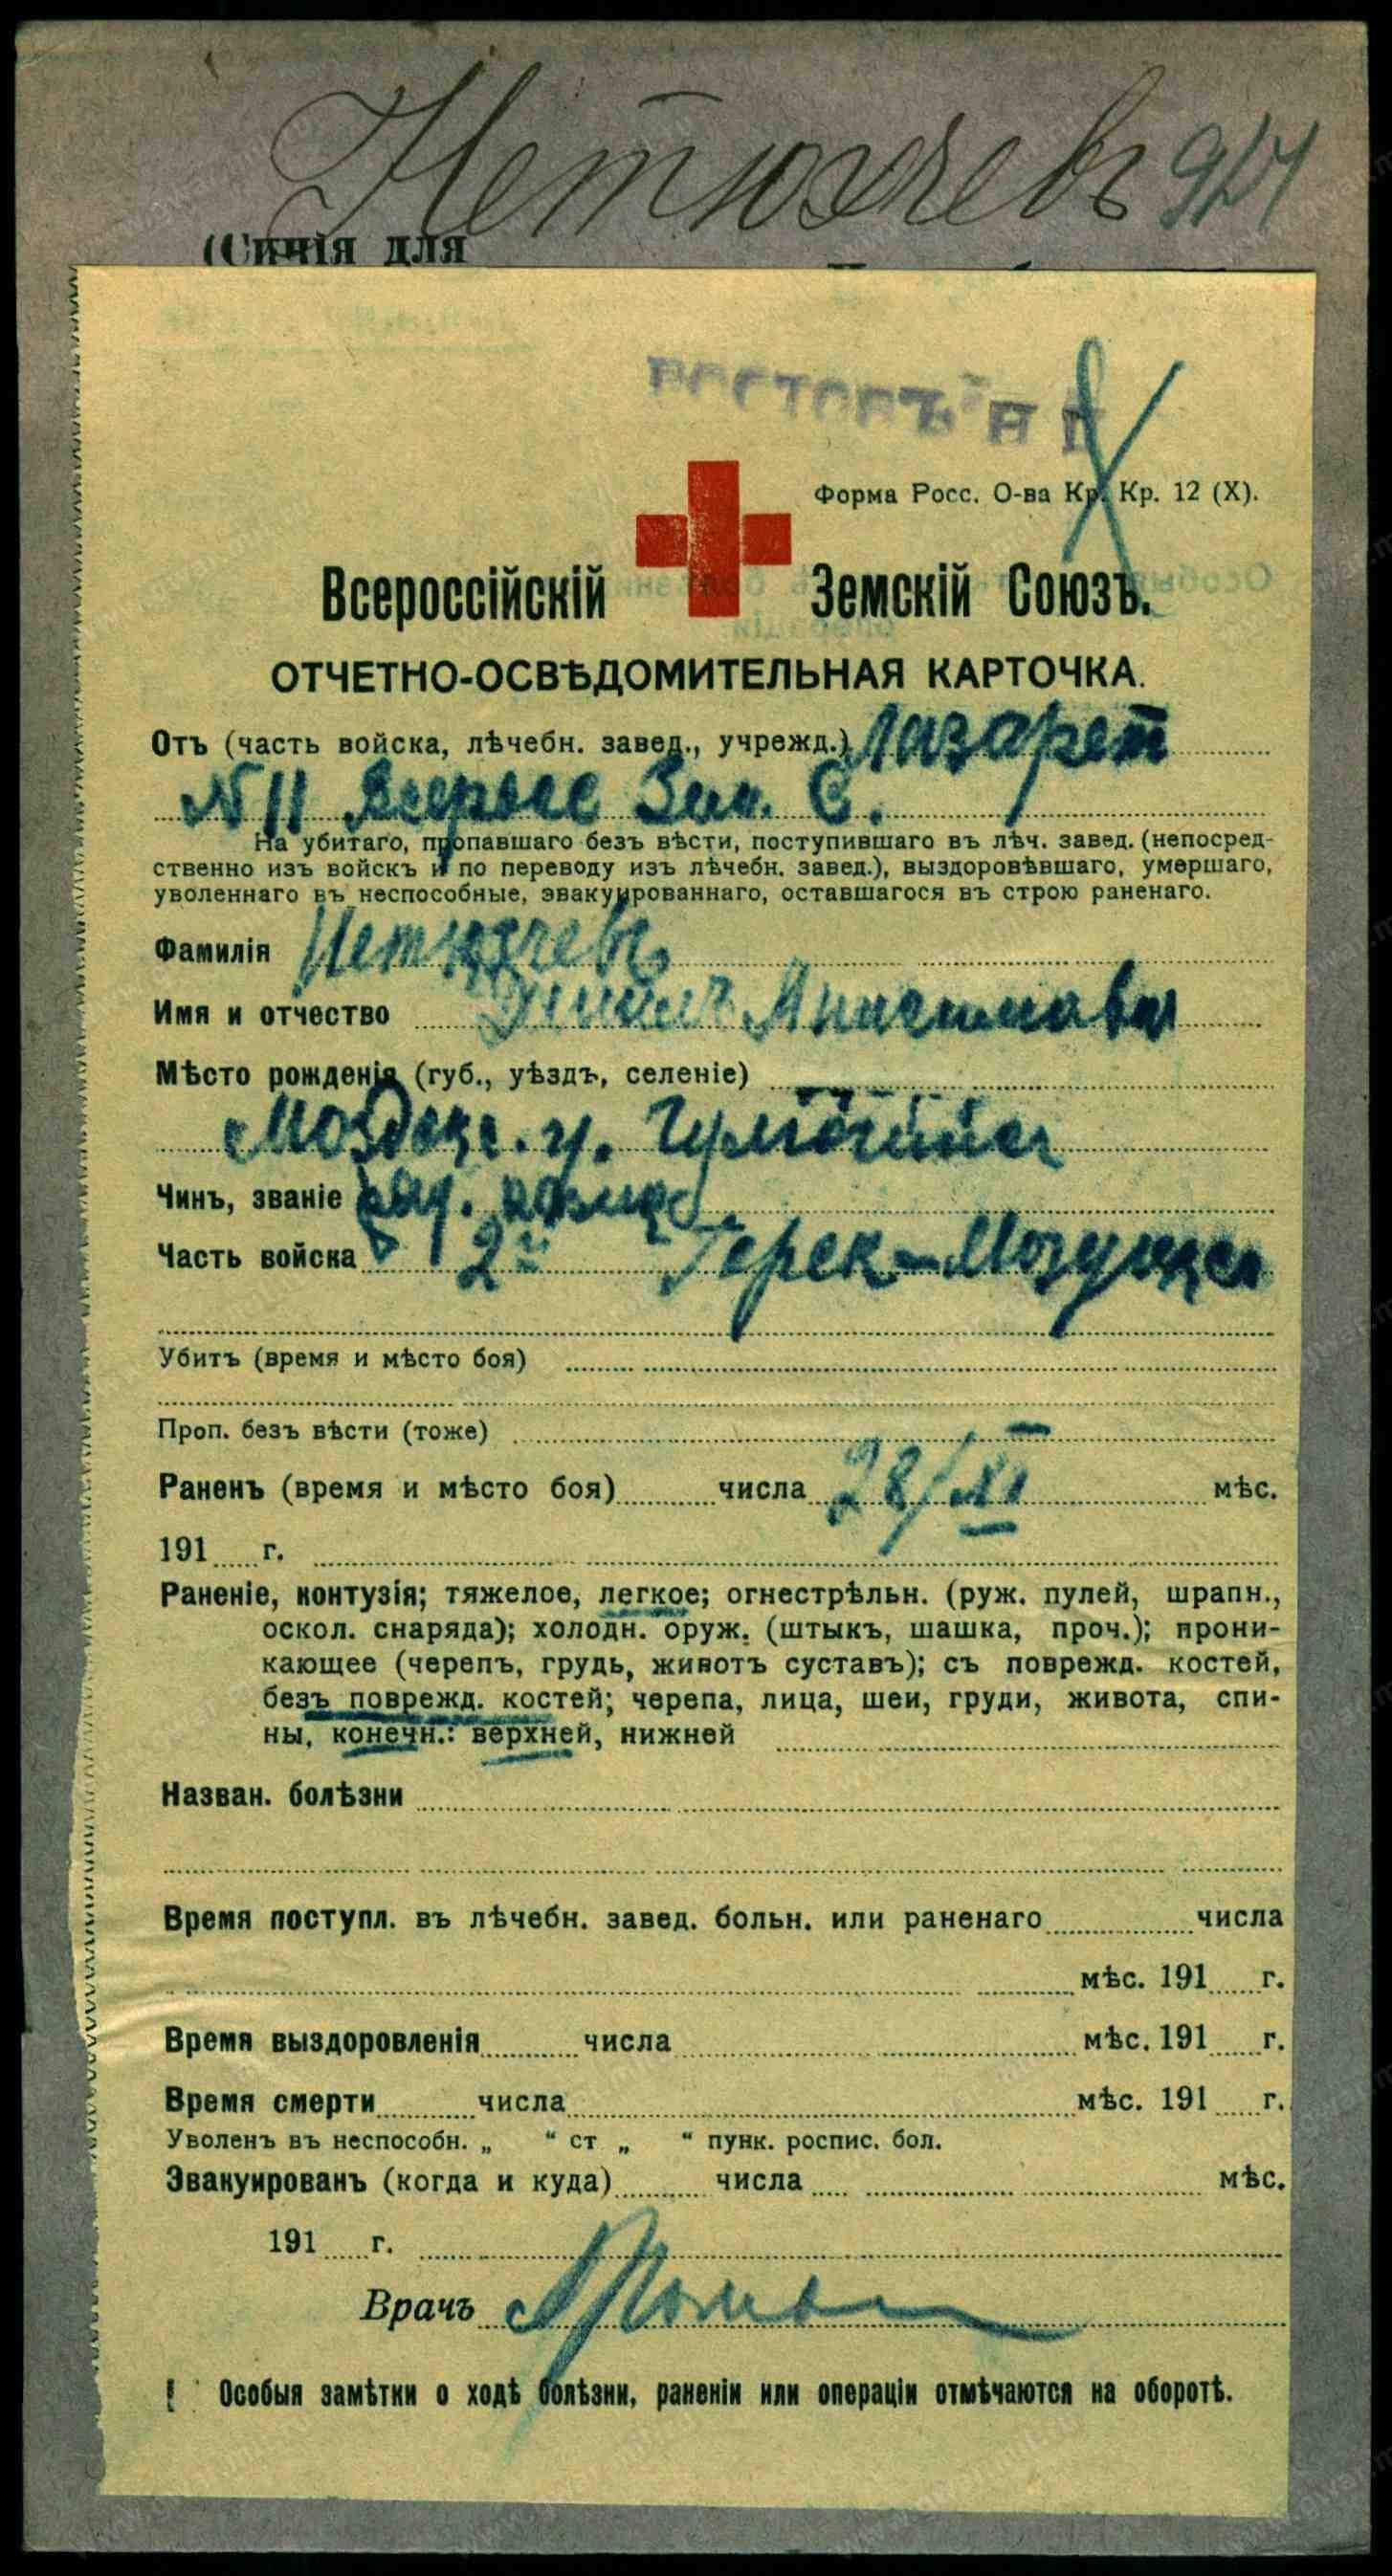 924
(Синія для
РОСТОВЪ Н Д
Форма Росс. О-ва Кр. Кр. 12 (X).
Всероссійскій Земскій Союзъ.
ОТЧЕТНО-ОСВѢДОМИТЕЛЬНАЯ КАРТОЧКА.
Отъ (часть войска, лѣчебн. завед., учрежд.) Лазарет
№ 11 Всеросс Зем. С.
На убитаго, пропавшаго безъ вѣсти, поступившаго въ лѣч. завед. (непосред-
ственно изъ войскъ и по переводу изъ лѣчебн. завед.), выздоровѣвшаго, умершаго,
уволеннаго въ неспособные, эвакуированнаго, оставшагося въ строю раненаго.
Фамилія
Имя и отчество
Мѣсто рожденія (губ., уѣздъ, селеніе)
Чинъ, званіе ряд.
Часть войска 2й Терек-
Убитъ (время и мѣсто боя)
Проп. безъ вѣсти (тоже)
Раненъ (время и мѣсто боя) числа 28/XI мѣс.
191 г.
Раненіе, контузія; тяжелое, легкое; огнестрѣльн. (руж. пулей, шрапн.,
оскол. снаряда); холодн. оруж. (штыкъ, шашка, проч.); прони-
кающее (черепъ, грудь, животъ суставъ); съ поврежд. костей,
безъ поврежд. костей; черепа, лица, шеи, груди, живота, спи-
ны, конечн.: верхней, нижней
Назван. болѣзни
Время поступл. въ лѣчебн. завед. больн. или раненаго числа
мѣс. 191 г.
Время выздоровленія числа мѣс. 191 г.
Время смерти числа мѣс. 191 г.
Уволенъ въ неспособн. „ “ ст „ “ пунк. роспис. бол.
Эвакуированъ (когда и куда) числа мѣс.
191 г.
Врачъ
! Особыя замѣтки о ходѣ болѣзни, раненіи или операціи отмѣчаются на оборотѣ.